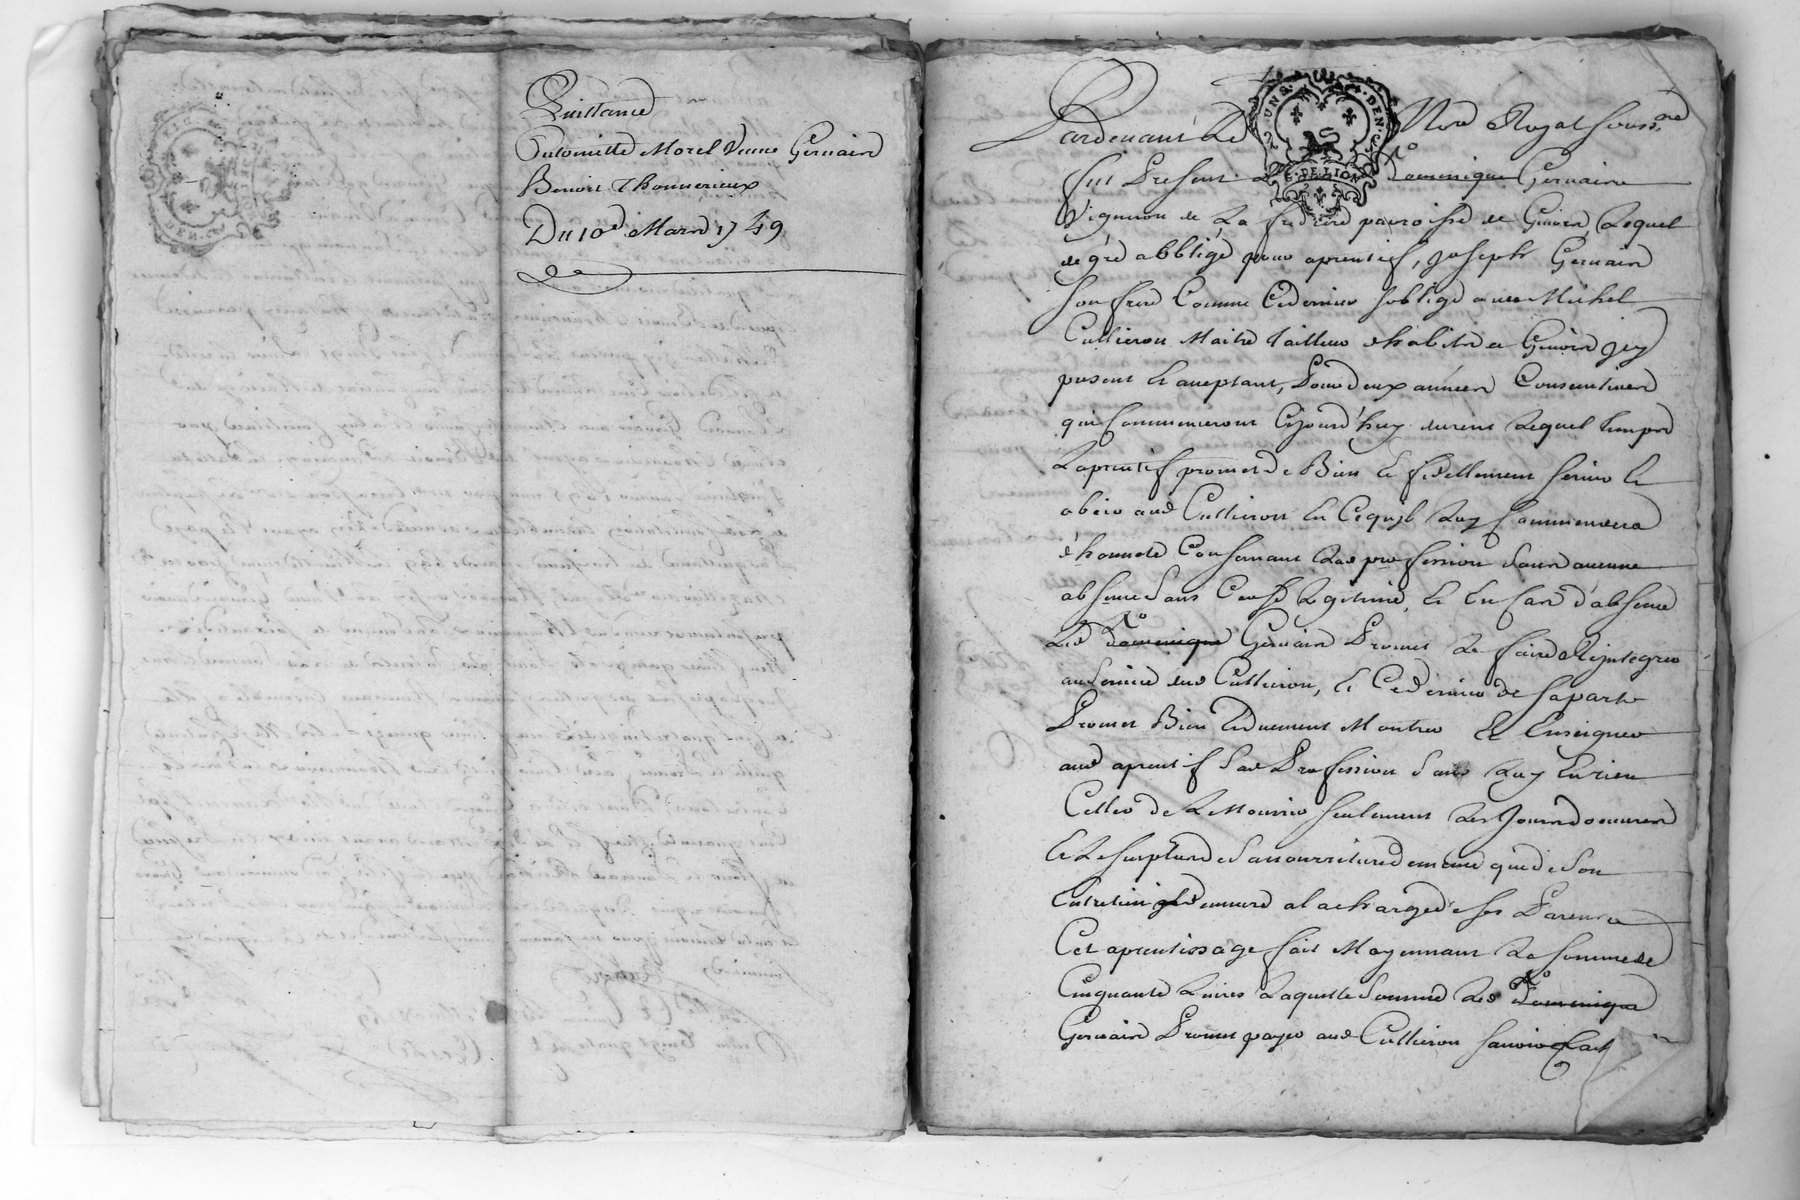 Quittance
Antoinette Morel Veuve Gervain
Benoit Thonnerieux
Du 10e Mars 1749
Pardevant Le Nore Royal souss.né
fut Present Dominique Gervain
Vigneron de La paroisse de Givors, Lequel
de gré abbligé pour aprentif, Joseph Gervain
son frere Comme Cedernier soblige avec Michel
Cullieron Maitre Tailleur habitn a Givors jcy
present Et aceptant, Pour deux années Consecutives
qui Commenceront Cejourd'huy. durent Lequel temps
Laprentif promet de Bien Et fidellement servir Et
obeir aud Cullieron En Cequjl Luy Commendera
d'honnete Consernant Lad profession sans aucune
absence sans Cause Legitime, Et En Cas d'absence
Led Dominique Gervain Promet Le faire Rejntegrer
au service dud Cullieron, Et Cedernier de sa part
Promet Bien Et duement Montrer Et Enseigner
aud aprentif Sad Profession sans Luy En rien
Celler de Le Nourrir seulement Les Jours douvres
Et Le surplus de sa nourriture de meme que de son
Entretien demeure a la charge de ses Parents
Cet aprentissage fait Moyennant La somme de
Cinquante Livres Laquelle somme Led Dominique
Gervain Promet payer aud Cullieron savoir
UNS. DEN.
G. DE LION